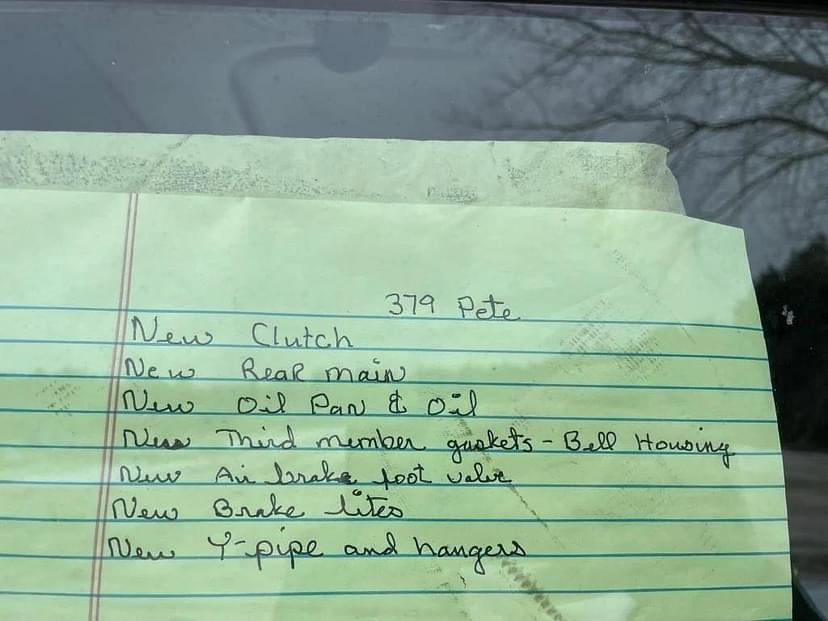 379 Pete
New Clutch
New Rear main
New Oil Pan & Oil
New Third member gaskets - Bell Housing
New Air brake foot valve
New Brake lites
New Y-pipe and hangers